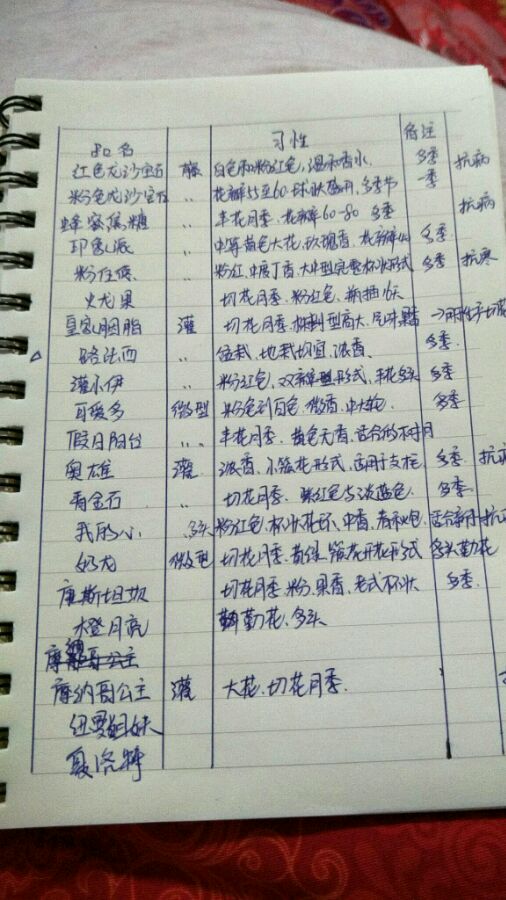 品名 习性 备注
红色龙沙宝石 藤 白色和粉红色,温和香水. 多季 抗病
粉色龙沙宝石 〃 花瓣55至60.球状盛开,多季节 一季
蜂蜜焦糖 〃 丰花月季、花瓣60-80 多季 抗病
印象派 〃 中等黄色大花、玫瑰香、花瓣 多季.
粉住候 〃 粉红、中度丁香、大中型完整杯状形式 多季 抗寒
火龙果 切花月季、粉红色、瓶插16天
皇家胭脂 灌 切花月季、树型高大、
路法西 〃 盆栽、地栽均宜、浓香、 多季.
灌小伊 〃 粉红色,双瓣型形式、丰花多头 多季
可爱多 微型 粉色到白色、微香、中大轮、 多季
假日阳台 〃 丰花月季、黄色无香、适合
奥雄 灌 浓香、小簇花形式、适用于支柱. 多季
青金石 〃 切花月季、粉红色与淡蓝色. 多季.
我的心 多头 粉红色、杯状花环、中香、
奶龙 微型 切花月季、黄绿、簇花开花形式 多头勤花
康斯坦茨 切花月季、粉、果香、老式杯状 多季.
水橙月亮 勤花、多头
摩纳哥公主
摩纳哥公主 灌 大花、切花月季.
纽曼姐妹
夏洛特